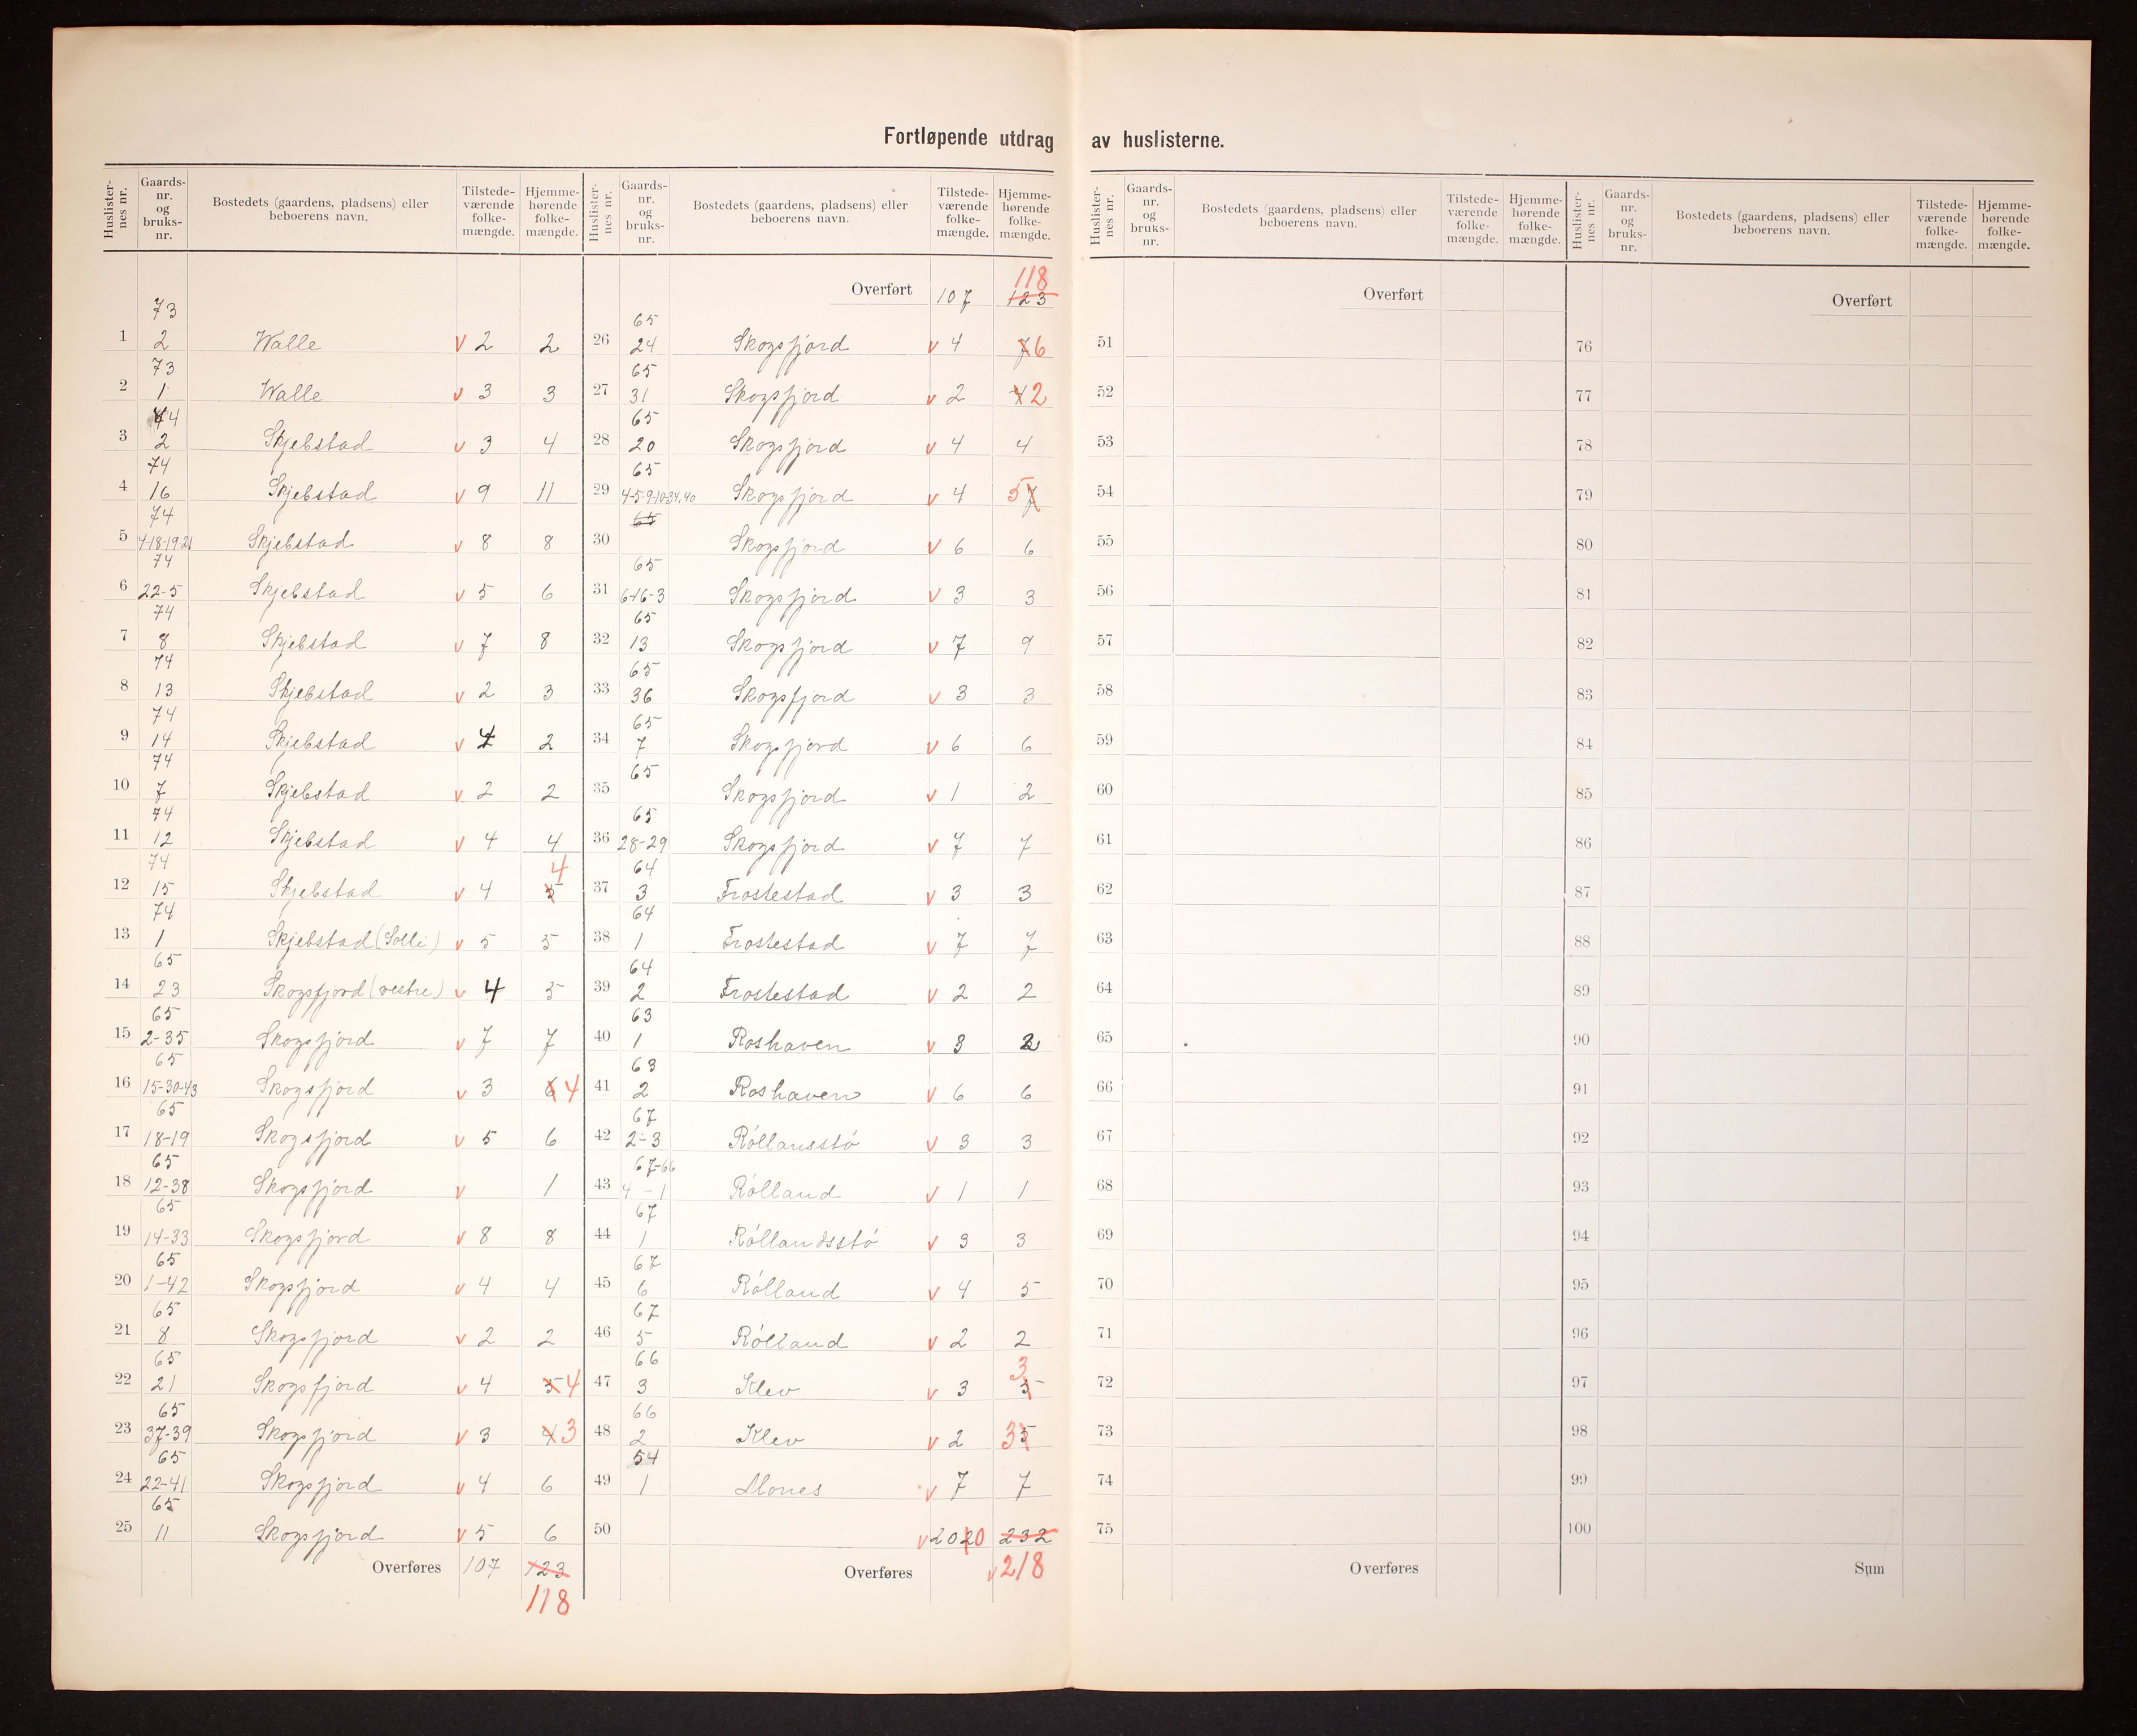 Fortløpende utdrag av huslisterne.
Huslister-nes nr. Gaards-nr. og bruks-nr. Bostedets (gaardens, pladsens) eller beboerens navn. Tilstede-værende folke-mængde. Hjemme-hørende folke-mængde.
73
1 2 Walle v 2 2
73
2 1 Walle v 3 3
74
3 2 Skjebstad v 3 4
74
4 16 Skjebstad v 9 11
74
5 4-18-19-21 Skjebstad v 8 8
74
6 22-5 Skjebstad v 5 6
74
7 8 Skjebstad v 7 8
74
8 13 Skjebstad v 2 3
74
9 14 Skjebstad v 2
74
10 7 Skjebstad v 2 2
74
11 12 Skjebstad v 4 4
74
12 15 Skjebstad v 4 5 4
74
13 1 Skjebstad (Solli) v 5 5
65
14 23 Skogsfjord (vestre) v 4 5
65
15 2-35 Skogsfjord v 7 7
65
16 15-30-43 Skogsfjord v 3 6 4
65
17 18-19 Skogsfjord v 5 6
65
18 12-38 Skogsfjord v 1
65
19 14-33 Skogsfjord v 8 8
65
20 1-42 Skogsfjord v 4 4
65
21 8 Skogsfjord v 2 2
65
22 21 Skogsfjord v 4 5 4
65
23 37-39 Skogsfjord v 3 4 3
65
24 22-41 Skogsfjord v 4 6
65
25 11 Skogsfjord v 5 6
Overføres 107 123
118
Huslister-nes nr. Gaards-nr. og bruks-nr. Bostedets (gaardens, pladsens) eller beboerens navn. Tilstede-værende folke-mængde. Hjemme-hørende folke-mængde.
118
Overført 107 123
65
26 24 Skogsfjord v 4 7 6
65
27 31 Skogsfjord v 2 4 2
65
28 20 Skogsfjord v 4 4
65
29 4-5-9-10-34.40 Skogsfjord v 4 5 7
65
30 Skogsfjord v 6 6
65
31 6-16-3 Skogsfjord v 3 3
65
32 13 Skogsfjord v 7 9
65
33 36 Skogsfjord v 3 3
65
34 7 Skogsfjord v 6 6
65
35 Skogsfjord v 1 2
65
36 28-29 Skogsfjord v 7 7
64
37 3 Frostestad v 3 3
64
38 1 Frostestad v 7 7
64
39 2 Frostestad v 2 2
63
40 1 Roshaven v 3 2
63
41 2 Roshaven v 6 6
67
42 2-3 Röllansstö v 3 3
67-66
43 4-1 Rölland v 1 1
67
44 1 Röllandsstö v 3 3
67
45 6 Rölland v 4 5
67
46 5 Rölland v 2 2
66
47 3 Klev v 3 5 3
66
48 2 Klev v 2 3 5
54
49 1 Mones v 7 7
50 v 202 0 232
Overføres v 218
Huslister-nes nr. Gaards-nr. og bruks-nr. Bostedets (gaardens, pladsens) eller beboerens navn. Tilstede-værende folke-mængde. Hjemme-hørende folke-mængde.
Overført
51
52
53
54
55
56
57
58
59
60
61
62
63
64
65
66
67
68
69
70
71
72
73
74
75
Overføres
Huslister-nes nr. Gaards-nr. og bruks-nr. Bostedets (gaardens, pladsens) eller beboerens navn. Tilstede-værende folke-mængde. Hjemme-hørende folke-mængde.
Overført
76
77
78
79
80
81
82
83
84
85
86
87
88
89
90
91
92
93
94
95
96
97
98
99
100
Sum